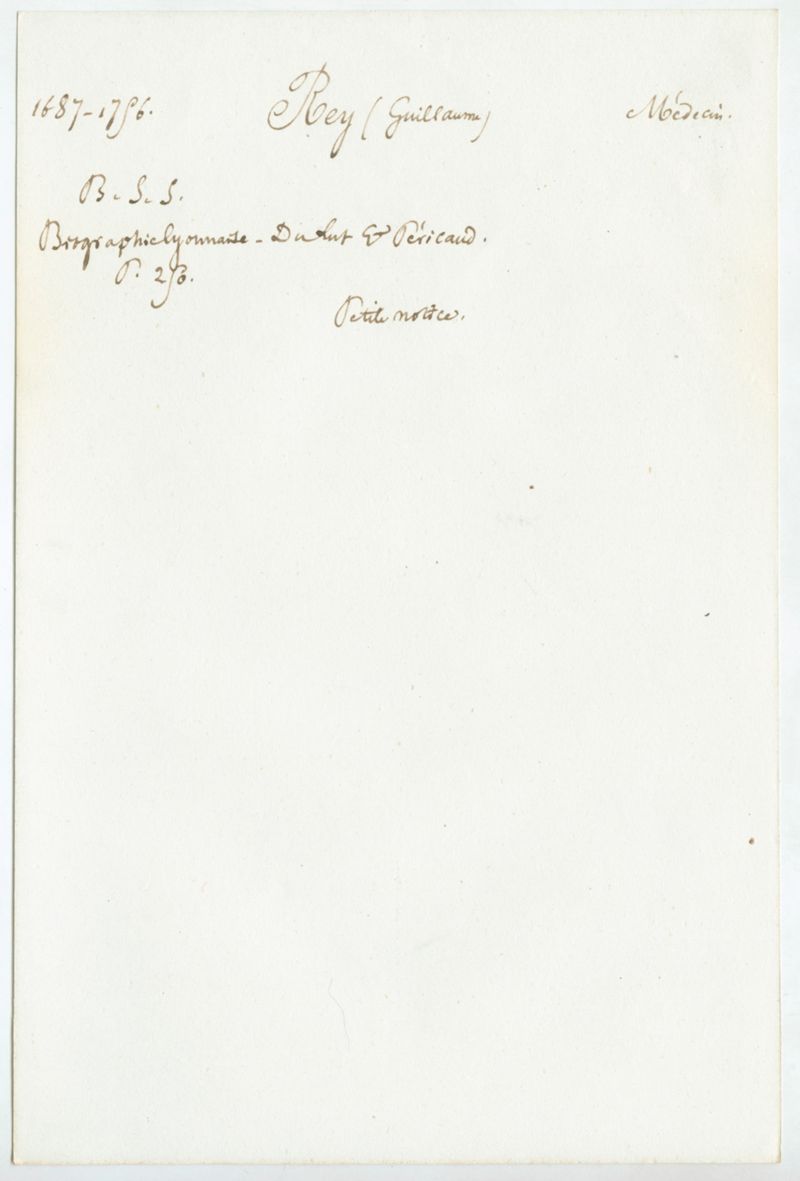 1687-1756. Rey (Guillaume) Médecin.
B. S. S.
Biographie lyonnaise - Du lut & Péricaud.
P. 250.
Petite notice.